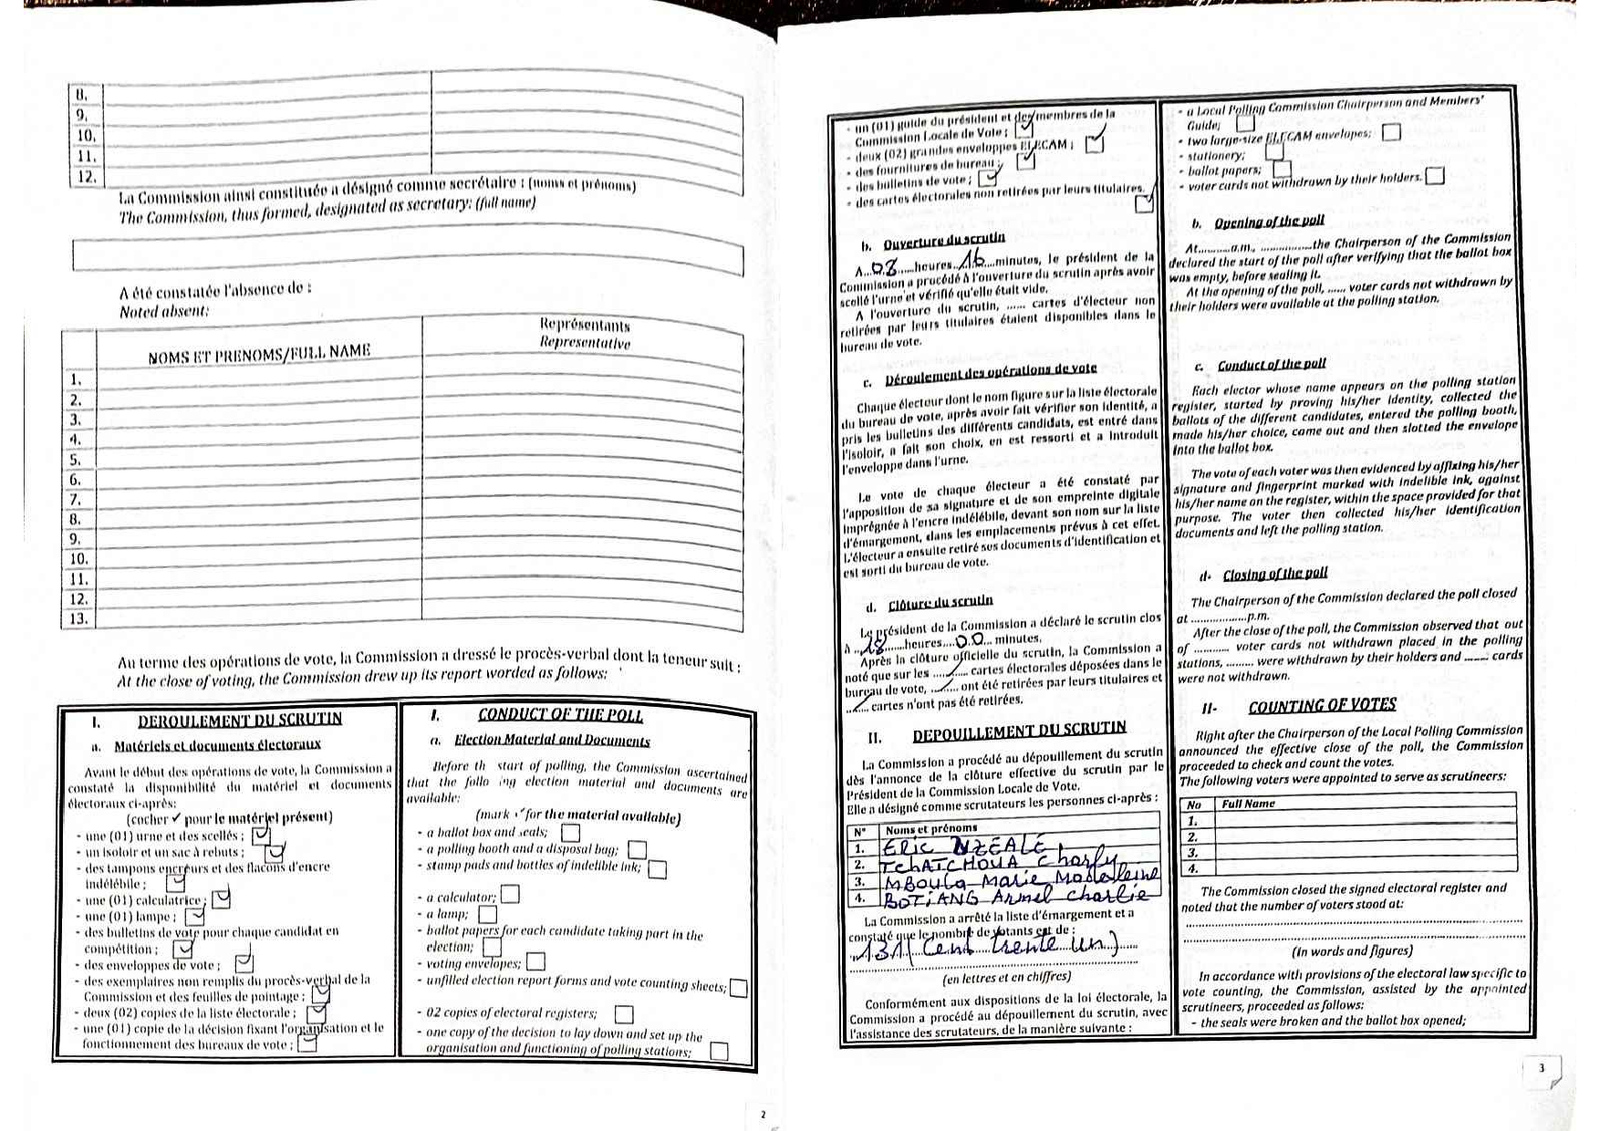 8.
9.
10.
11.
12.
La Commission ainsi constituée a désigné comme secrétaire : (noms et prénoms)
The Commission, thus formed, designated as secretary: (full name)
A été constatée l'absence de :
Noted absent:
NOMS ET PRENOMS/FULL NAME
Représentants
Representative
1.
2.
3.
4.
5.
6.
7.
8.
9.
10.
11.
12.
13.
Au terme des opérations de vote, la Commission a dressé le procès-verbal dont la teneur suit :
At the close of voting, the Commission drew up its report worded as follows:
I. DEROULEMENT DU SCRUTIN
a. Matériels et documents électoraux
Avant le début des opérations de vote, la Commission a
constaté la disponibilité du matériel et documents
électoraux ci-après:
(cocher ✓ pour le matériel présent)
- une (01) urne et des scellés ;
- un isoloir et un sac à rebuts ;
- des tampons encreurs et des flacons d'encre
indélébile ;
- une (01) calculatrice ;
- une (01) lampe ;
- des bulletins de vote pour chaque candidat en
compétition ;
- des enveloppes de vote ;
- des exemplaires non remplis du procès-verbal de la
Commission et des feuilles de pointage ;
- deux (02) copies de la liste électorale ;
- une (01) copie de la décision fixant l'organisation et le
fonctionnement des bureaux de vote ;
I. CONDUCT OF THE POLL
a. Election Material and Documents
Before th start of polling, the Commission ascertained
that the follo ing election material and documents are
available:
(mark ✓ for the material available)
- a ballot box and seals;
- a polling booth and a disposal bag;
- stamp pads and bottles of indelible ink;
- a calculator;
- a lamp;
- ballot papers for each candidate taking part in the
election;
- voting envelopes;
- unfilled election report forms and vote counting sheets;
- 02 copies of electoral registers;
- one copy of the decision to lay down and set up the
organisation and functioning of polling stations;
2
- un (01) guide du président et des membres de la
Commission Locale de Vote ;
- deux (02) grandes enveloppes ELECAM ;
- des fournitures de bureau ;
- des bulletins de vote ;
- des cartes électorales non retirées par leurs titulaires.
b. Ouverture du scrutin
A...08.....heures..16....minutes, le président de la
Commission a procédé à l'ouverture du scrutin après avoir
scellé l'urne et vérifié qu'elle était vide.
A l'ouverture du scrutin, ...... cartes d'électeur non
retirées par leurs titulaires étaient disponibles dans le
bureau de vote.
c. Déroulement des opérations de vote
Chaque électeur dont le nom figure sur la liste électorale
du bureau de vote, après avoir fait vérifier son identité, a
pris les bulletins des différents candidats, est entré dans
l'isoloir, a fait son choix, en est ressorti et a introduit
l'enveloppe dans l'urne.
Le vote de chaque électeur a été constaté par
l'apposition de sa signature et de son empreinte digitale
imprégnée à l'encre indélébile, devant son nom sur la liste
d'émargement, dans les emplacements prévus à cet effet.
L'électeur a ensuite retiré ses documents d'identification et
est sorti du bureau de vote.
d. Clôture du scrutin
Le président de la Commission a déclaré le scrutin clos
à ..18.....heures....00... minutes.
Après la clôture officielle du scrutin, la Commission a
noté que sur les ..../...... cartes électorales déposées dans le
bureau de vote, ..../..... ont été retirées par leurs titulaires et
../.... cartes n'ont pas été retirées.
II. DEPOUILLEMENT DU SCRUTIN
La Commission a procédé au dépouillement du scrutin
dès l'annonce de la clôture effective du scrutin par le
Président de la Commission Locale de Vote.
Elle a désigné comme scrutateurs les personnes ci-après :
N° Noms et prénoms
1. ERIC NZEALE
2. TCHATCHOUA Charly
3. MBOULA Marie Madeleine
4. BOTIANG Armel Charlie
La Commission a arrêté la liste d'émargement et a
constaté que le nombre de votants est de :
131 (Cent trente un)
(en lettres et en chiffres)
Conformément aux dispositions de la loi électorale, la
Commission a procédé au dépouillement du scrutin, avec
l'assistance des scrutateurs, de la manière suivante :
- a Local Polling Commission Chairperson and Members'
Guide;
- two large-size ELECAM envelopes;
- stationery;
- ballot papers;
- voter cards not withdrawn by their holders.
b. Opening of the poll
At..........a.m., ...............the Chairperson of the Commission
declared the start of the poll after verifying that the ballot box
was empty, before sealing it.
At the opening of the poll, ...... voter cards not withdrawn by
their holders were available at the polling station.
c. Conduct of the poll
Each elector whose name appears on the polling station
register, started by proving his/her identity, collected the
ballots of the different candidates, entered the polling booth,
made his/her choice, came out and then slotted the envelope
into the ballot box.
The vote of each voter was then evidenced by affixing his/her
signature and fingerprint marked with indelible ink, against
his/her name on the register, within the space provided for that
purpose. The voter then collected his/her identification
documents and left the polling station.
d- Closing of the poll
The Chairperson of the Commission declared the poll closed
at ..................p.m.
After the close of the poll, the Commission observed that out
of ........... voter cards not withdrawn placed in the polling
stations, ......... were withdrawn by their holders and ....... cards
were not withdrawn.
II- COUNTING OF VOTES
Right after the Chairperson of the Local Polling Commission
announced the effective close of the poll, the Commission
proceeded to check and count the votes.
The following voters were appointed to serve as scrutineers:
No Full Name
1.
2.
3.
4.
The Commission closed the signed electoral register and
noted that the number of voters stood at:
(in words and figures)
In accordance with provisions of the electoral law specific to
vote counting, the Commission, assisted by the appointed
scrutineers, proceeded as follows:
- the seals were broken and the ballot box opened;
3